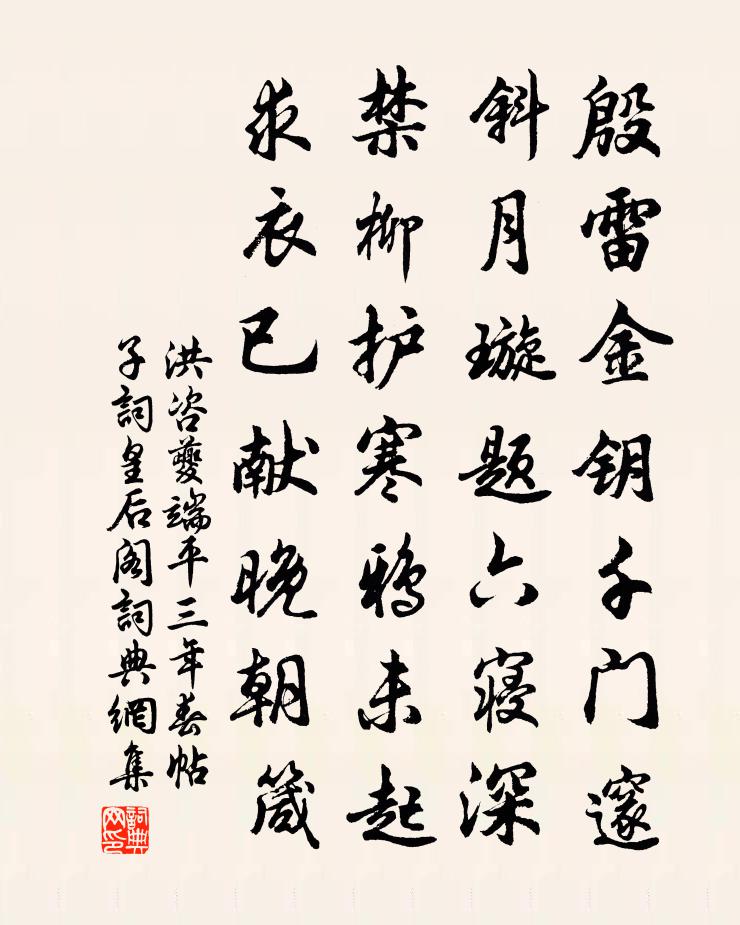 殷雷金钥千门邃
斜月璇题六寝深
禁柳护寒鸦未起
求衣已献晚朝箴
洪咨夔端平三年春帖
子詞皇后阁詞典網集
詞典